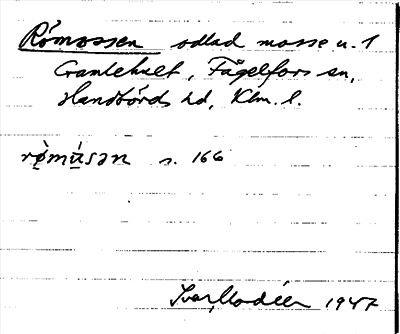 Römossen odlad mosse u. 1
Gamlehult, Fågelfors sn,
Handbörds hd, Klm. l.
rø̀mùsən s. 166
Ivar Modéer 1947